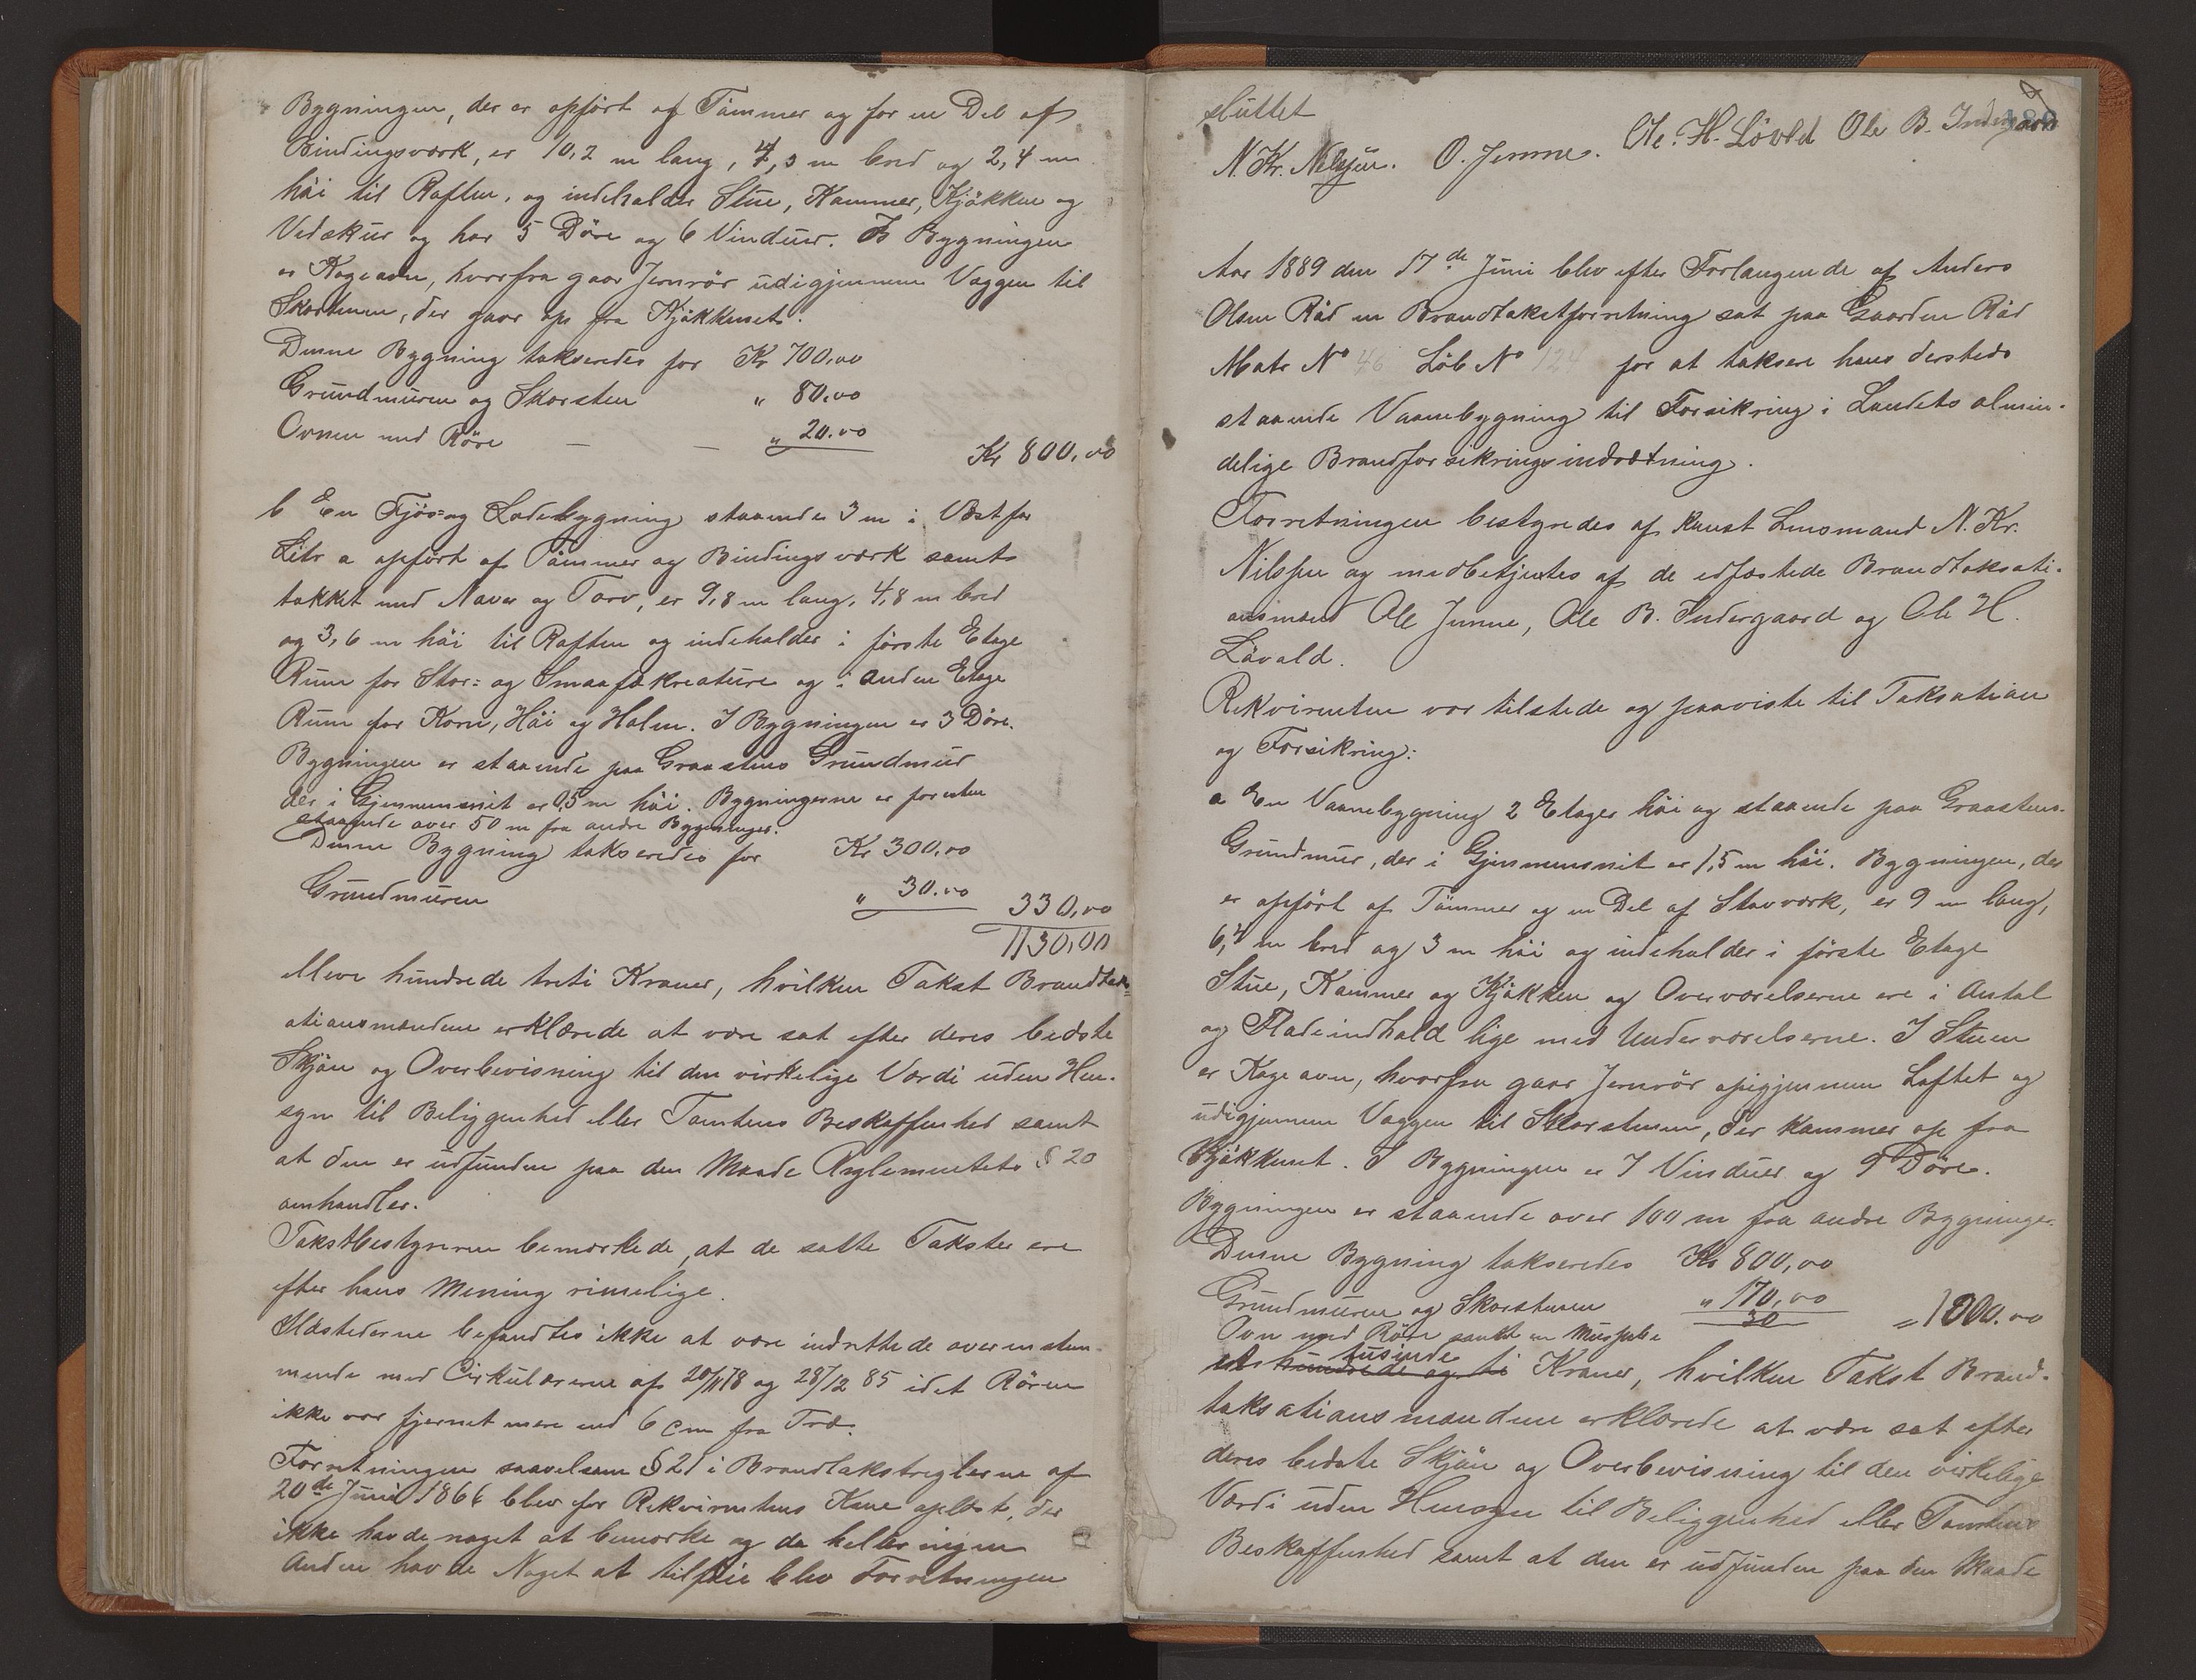 Bygningen, der er opført af Tømmer og for en Del af
Bindingsværk, er 10,2 m lang, 4,3 m bred og 2,4 m
høi til Raften, og indeholder Stue, Kammer, Kjøkken og
Vedskur og har 5 Døre og 6 Vinduer. I Bygningen
er Kogeovn, hvorfra gaar Jernrør udigjennem Væggen til
Skorstenen, der gaar op fra Kjøkkenet.
Denne Bygning takseredes for Kr 700,00
Grundmuren og Skorsten " 80,00
Ovnen med Røre — — " 20.00
Kr 800,00
b En Fjøs= og Ladebygning staaende 3 m i Vest for
Litr a opført af Tømmer og Bindingsværk samt
tækket med Næver og Torv, er 9,8 m lang, 4,8 m bred
og 3,6 m høi til Raften og indeholder i første Etage
Rum for Stor= og Smaafækreature og i anden Etage
Rum for Korn, Høi og Halm. I Bygningen er 3 Døre.
Bygningen er staaende paa Graastens Grundmur
der i Gjennemsnit er 0,5 m høi. Bygningerne er foruden
staaende over 50 m fra andre Bygninger.
Denne Bygning takseredes for Kr 300,00
Grundmuren " 30.00 330,00
1130,00
elleve hundrede treti Kroner, hvilken Takst Brandtaks=
ationsmændene erklærede at være sat efter deres bedste
Skjøn og Overbevisning til den virkelige Værdi uden Hen-
syn til Beliggenhed eller Tomtens Beskaffenhed samt
at den er udfunden paa den Maade Reglementets § 20
omhandler.
Takstbestyreren bemærkede, at de satte Takster ere
efter hans Mening rimelige.
Ildstederne befandtes ikke at være indrettede overensstem-
mende med Cirkulærerne af 20/11 78 og 28/12 85 idet Røren
ikke var fjernet mere end 6 cm fra Træ.
Forretningen saavelsom § 21 i Brandtakstreglerne af
20de Juni 1866 blev for Rekvirentens Kone oplæst, der
ikke havde noget at bemærke og da heller ingen
Anden havde Noget at tilføie blev Forretningen
sluttet
N. Kr. Nilssen. O. Jenne. Ole. H. Lövold Ole B. Indergaard
Aar 1889 den 17de Juni blev efter Forlangende af Anders
Olsen Rød en Brandtakstforretning sat paa Gaarden Rød
Matr No 46 Løb No 124 for at taksere hans dersteds
staaende Vaanebygning til Forsikring i Landets almin-
delige Brandforsikringsindretning.
Forretningen bestyredes af konst Lensmand N. Kr.
Nilssen og medbetjentes af de edfæstede Brandtaksati-
onsmænd Ole Jenne, Ole B. Indergaard og Ole H.
Løvold.
Rekvirenten var tilstede og paaviste til Taksation
og Forsikring:
a En Vaanebygning 2 Etager høi og staaende paa Graastens-
Grundmur, der i Gjennemsnit er 1,5 m høi. Bygningen, der
er opført af Tømmer og en Del af Stavværk, er 9 m lang,
6,4 m bred og 3 m høi og indeholder i første Etage
Stue, Kammer og Kjøkken og Overværelserne ere i Antal
og Fladeindhold lige med Underværelserne. I Stuen
er Kogeovn, hvorfra gaar Jernrør opigjennem Loftet og
udigjennem Væggen til Skorstenen, der kommer op fra
Kjøkkenet. I Bygningen er 7 Vinduer og 9 Døre.
Bygningen er staaende over 100 m fra andre Bygninger.
Denne Bygning takseredes Kr 800,00
Grundmuren og Skorstenen " 170,00
Ovn med Røre samt en Murpibe 30 = 1000.00
et hundrede og ti tusinde Kroner, hvilken Takst Brand-
taksationsmændene erklærede at være sat efter
deres bedste Skjøn og Overbevisning til den virkelige
Værdi uden Hensyn til Beliggenhed eller Tomtens
Beskaffenhed samt at den er udfunden paa den Maade